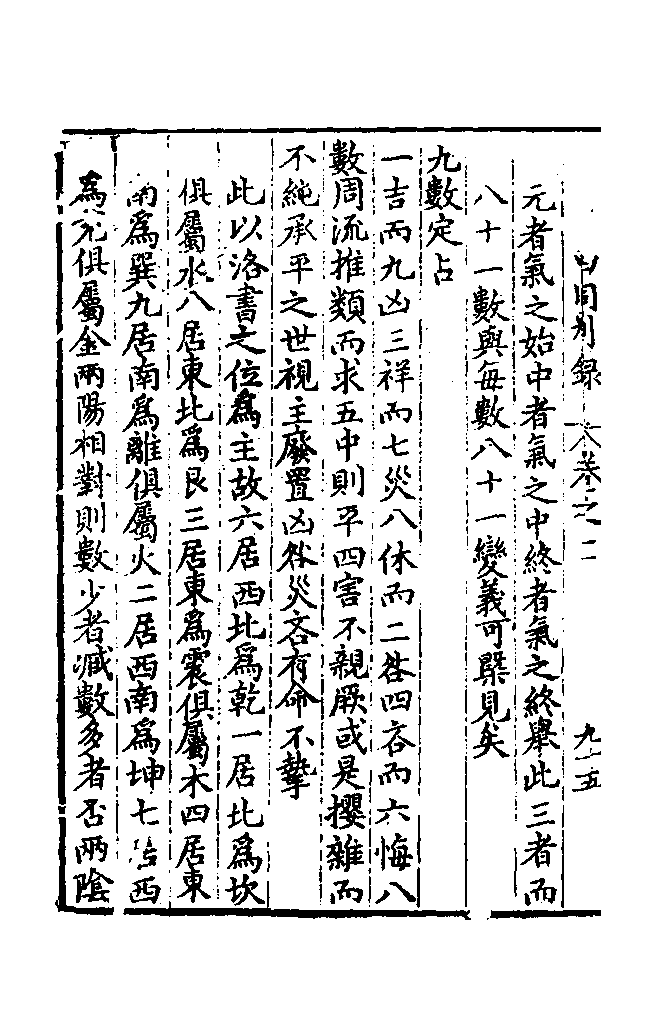 同別錄 卷之二 九十五
元者氣之始中者氣之中終者氣之終舉此三者而
八十一數與每數八十一變義可槩見矣
九數定占
一吉而九凶三祥而七災八休而二咎四吝而六悔八
數周流推類而求五中則平四害不親厥或是攖雜而
不純承平之世視主廢置凶咎災吝有命不摯
此以洛書之位為主故六居西北為乾一居北為坎
俱屬水八居東北為艮三居東為震俱屬木四居東
南為巽九居南為離俱屬火二居西南為坤七居西
為兌俱屬金兩陽相對則數少者減數多者否兩陰